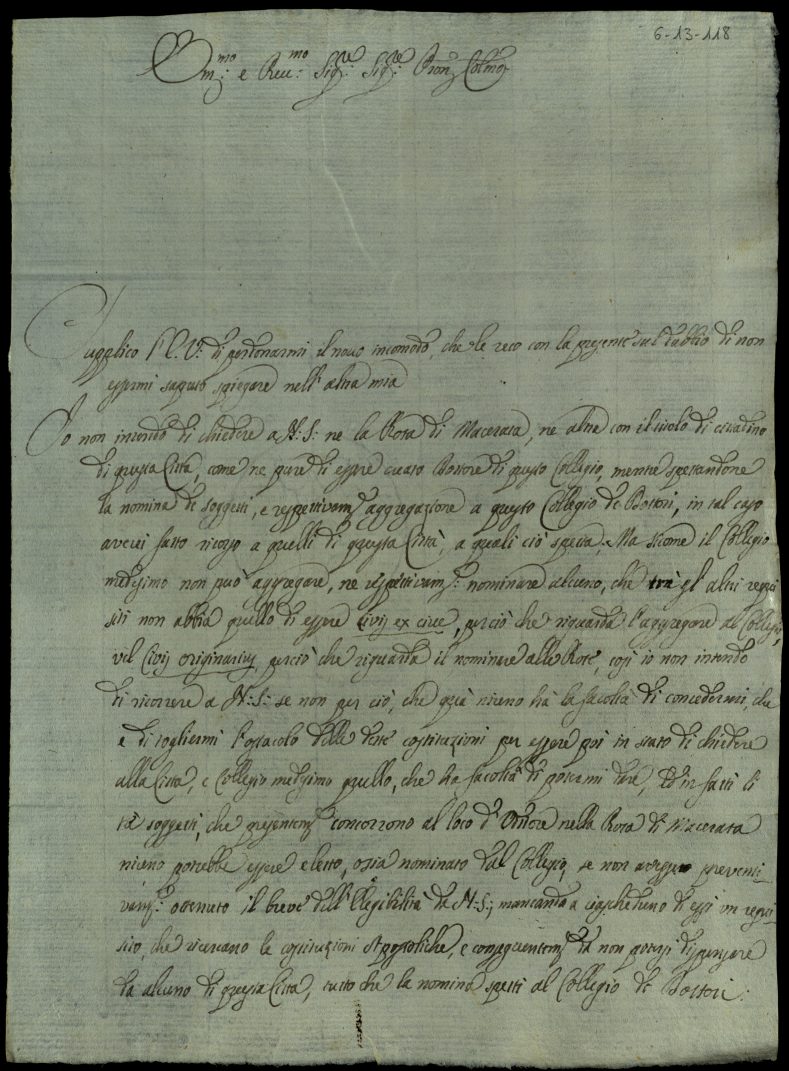 6-13-118
Em:mo e Rev:mo Sig:re Sig:re Pron Colmo
Supplico l'E. V. di perdonarmi il novo incomodo, che le reco con la presente sul dubbio di non
essermi saputo spiegare nell'altra mia
Io non intendo di chiedere a N: S: ne la Rota di Macerata, ne altre con il titolo di cittadino
di questa Città, come ne pure di essere creato Dottore di questo Collegio, mentre spettandone
la nomina de soggetti, e respettivam:e aggregazione a questo Collegio de Dottori, in tal caso
averei fatto ricorso a quelli di questa Città, a quali ciò spetta. Ma siccome il Collegio
medesimo non può aggregare, ne respettivam:e nominare alcuno, che trà gl'altri requi
siti non abbia quello di essere Civis ex cive, per ciò che riguarda l'aggregare al Collegio,
vel Civis originarius, per ciò che riguarda il nominare alle Rote, così io non intendo
di ricorrere a N: S: se non per ciò, che quà niuno hà la facoltà di concedermi, che
è di togliermi l'ostacolo delle dette costituzioni per essere poi in stato di chiedere
alla Città, e Collegio medesimo quello, che ha facoltà di potermi dare, ed in fatti li
soggetti, che presentem:e concorrono al loco d'Uditore nella Rota di Macerata
niuno potrebbe essere eletto, o sia nominato dal Collegio, se non avesse preventi
vam:e ottenuto il breve dell'Elegibilità da N: S:, mancando a ciascheduno di essi un requi
sito, che ricercano le costituzioni Apostoliche, e conseguentem:e da non potersi dispensare
da alcuno di questa Città, tutto che la nomina spetti al Collegio de Dottori.